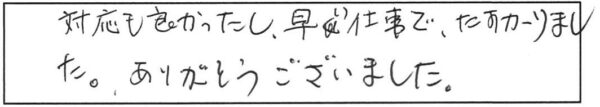 対応も良かったし、早い仕事で、たすかりまし
た。ありがとうございました。